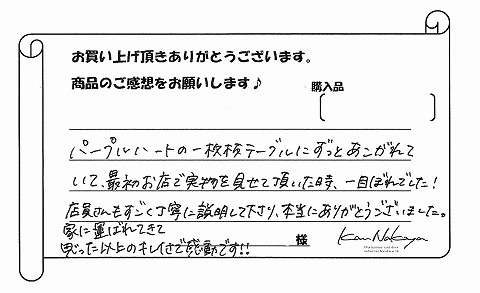 お買い上げ頂きありがとうございます。
商品のご感想をお願いします♪
購入品
パープルハートの一枚板テーブルにずっとあこがれて
いて、最初お店で実物を見せて頂いた時、一目ぼれでした！
店員さんもすごく丁寧に説明して下さり、本当にありがとうございました。
家に運ばれてきて
思った以上のキレイさで感動です!!
様
Kan Nakaya